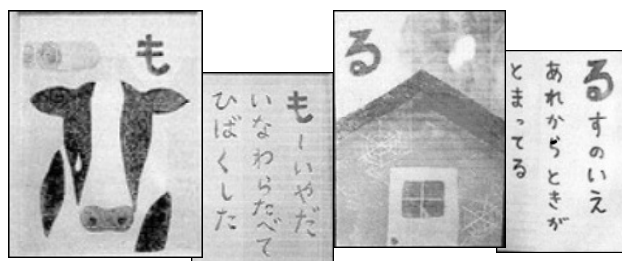 も
もーいやだ
いなわらたべて
ひばくした
る
るすのいえ
あれからときが
とまってる